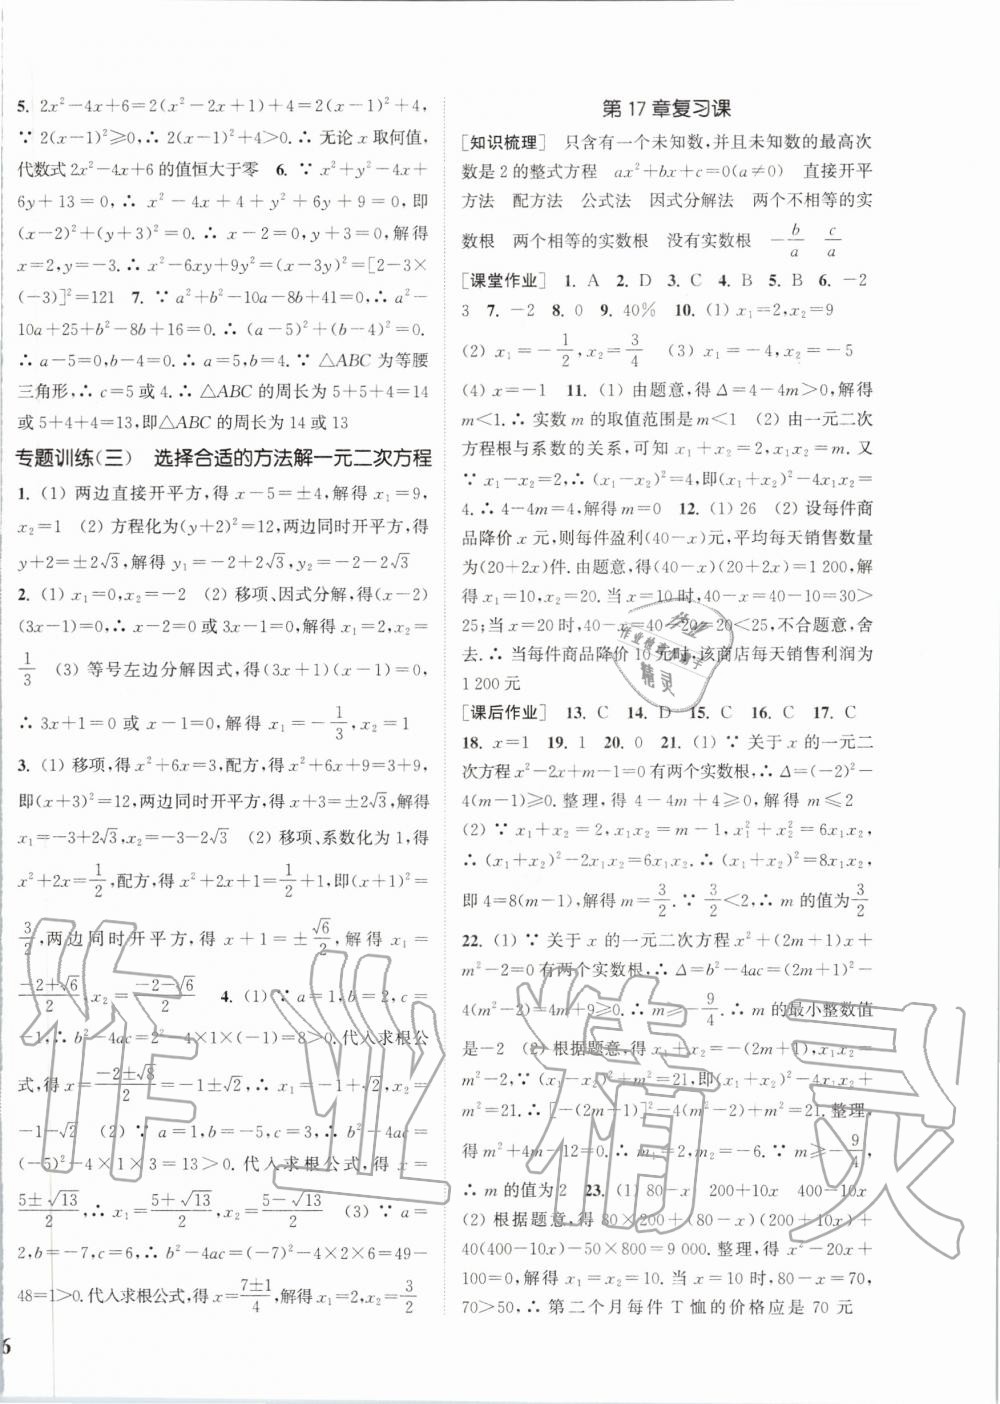 5. 2x²−4x+6=2(x²−2x+1)+4=2(x−1)²+4,
∵ 2(x−1)²≥0,∴ 2(x−1)²+4>0.∴ 无论 x 取何值,
代数式 2x²−4x+6 的值恒大于零 6. ∵ x²+y²−4x+
6y+13=0,∴ x²−4x+4+y²+6y+9=0,即
(x−2)²+(y+3)²=0.∴ x−2=0,y+3=0,解得
x=2,y=−3.∴ x²−6xy+9y²=(x−3y)²=[2−3×
(−3)]²=121 7. ∵ a²+b²−10a−8b+41=0,∴ a²−
10a+25+b²−8b+16=0.∴ (a−5)²+(b−4)²=0.
∴ a−5=0,b−4=0.∴ a=5,b=4.∵ △ABC 为等腰
三角形,∴ c=5 或 4.∴ △ABC 的周长为 5+5+4=14
或 5+4+4=13,即△ABC 的周长为 14 或 13
专题训练(三) 选择合适的方法解一元二次方程
1. (1) 两边直接开平方,得 x−5=±4,解得 x₁=9,
x₂=1 (2) 方程化为(y+2)²=12,两边同时开平方,得
y+2=±2√3,解得 y₁=−2+2√3,y₂=−2−2√3
2. (1) x₁=0,x₂=−2 (2) 移项、因式分解,得(x−2)
(3x−1)=0,∴ x−2=0 或 3x−1=0.解得 x₁=2,x₂=
1/3 (3) 等号左边分解因式,得(3x+1)(x−1)=0,
∴ 3x+1=0 或 x−1=0,解得 x₁=−1/3,x₂=1
3. (1) 移项,得 x²+6x=3,配方,得 x²+6x+9=3+9,
即(x+3)²=12,两边同时开平方,得 x+3=±2√3,解得
x₁=−3+2√3,x₂=−3−2√3 (2) 移项、系数化为 1,得
x²+2x=1/2,配方,得 x²+2x+1=1/2+1,即(x+1)²=
3/2,两边同时开平方,得 x+1=±√6/2,解得 x₁=
(−2+√6)/2,x₂=(−2−√6)/2 4. (1) ∵ a=1,b=2,c=
−1,∴ b²−4ac=2²−4×1×(−1)=8>0.代入求根公
式,得 x=(−2±√8)/2=−1±√2.∴ x₁=−1+√2,x₂=
−1−√2 (2) ∵ a=1,b=−5,c=3,∴ b²−4ac=
(−5)²−4×1×3=13>0.代入求根公式,得 x=
(5±√13)/2,∴ x₁=(5+√13)/2,x₂=(5−√13)/2 (3) ∵ a=
2,b=−7,c=6,∴ b²−4ac=(−7)²−4×2×6=49−
48=1>0.代入求根公式,得 x=(7±1)/4,解得 x₁=2,x₂=3/2
6
第 17 章复习课
[知识梳理] 只含有一个未知数,并且未知数的最高次
数是 2 的整式方程 ax²+bx+c=0(a≠0) 直接开平
方法 配方法 公式法 因式分解法 两个不相等的实
数根 两个相等的实数根 没有实数根 −b/a c/a
[课堂作业] 1. A 2. D 3. C 4. B 5. B 6. −2
3 7. −2 8. 0 9. 40% 10. (1) x₁=2,x₂=9
(2) x₁=−1/2,x₂=3/4 (3) x₁=−4,x₂=−5
(4) x=−1 11. (1) 由题意,得 Δ=4−4m>0,解得
m<1.∴ 实数 m 的取值范围是 m<1 (2) 由一元二次
方程根与系数的关系,可知 x₁+x₂=2,x₁x₂=m.又
∵ x₁−x₂=2,∴ (x₁−x₂)²=4,即(x₁+x₂)²−4x₁x₂=
4.∴ 4−4m=4,解得 m=0 12. (1) 26 (2) 设每件商
品降价 x 元,则每件盈利(40−x)元,平均每天销售数量
为(20+2x)件.由题意,得(40−x)(20+2x)=1 200,解
得 x₁=10,x₂=20.当 x=10 时,40−x=40−10=30>
25;当 x=20 时,40−x=40−20=20<25,不合题意,舍
去.∴ 当每件商品降价 10 元时,该商店每天销售利润为
1 200 元
[课后作业] 13. C 14. D 15. C 16. C 17. C
18. x=1 19. 1 20. 0 21. (1) ∵ 关于 x 的一元二
次方程 x²−2x+m−1=0 有两个实数根,∴ Δ=(−2)²−
4(m−1)≥0.整理,得 4−4m+4≥0,解得 m≤2
(2) ∵ x₁+x₂=2,x₁x₂=m−1,x₁²+x₂²=6x₁x₂,
∴ (x₁+x₂)²−2x₁x₂=6x₁x₂.∴ (x₁+x₂)²=8x₁x₂,
即 4=8(m−1),解得 m=3/2.∵ 3/2<2,∴ m 的值为3/2
22. (1) ∵ 关于 x 的一元二次方程 x²+(2m+1)x+
m²−2=0 有两个实数根,∴ Δ=b²−4ac=(2m+1)²−
4(m²−2)=4m+9≥0.∴ m≥−9/4.∴ m 的最小整数值
是−2 (2) 根据题意,得 x₁+x₂=−(2m+1),x₁x₂=
m²−2.∵ (x₁−x₂)²+m²=21,即(x₁+x₂)²−4x₁x₂+
m²=21.∴ [−(2m+1)]²−4(m²−2)+m²=21.整理,
得 m²+4m−12=0.解得 m₁=2,m₂=−6.∵ m≥−9/4,
∴ m 的值为 2 23. (1) 80−x 200+10x 400−10x
(2) 根据题意,得 80×200+(80−x)(200+10x)+
40(400−10x)−50×800=9 000.整理,得 x²−20x+
100=0,解得 x₁=x₂=10.当 x=10 时,80−x=70,
70>50,∴ 第二个月每件 T 恤的价格应是 70 元
作业精灵